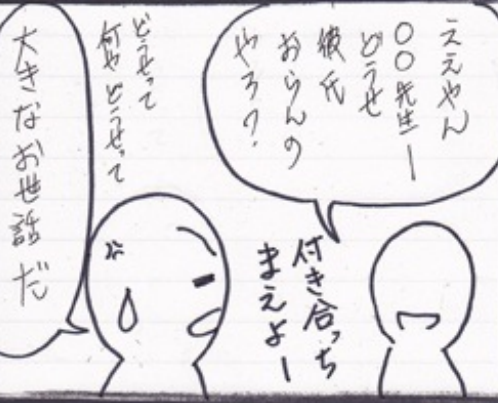 ええやん
〇〇先生ー
どうせ
彼氏
おらんの
やろ?
付き合っち
まえよー
どうせって
何やどうせって
大きなお世話だ